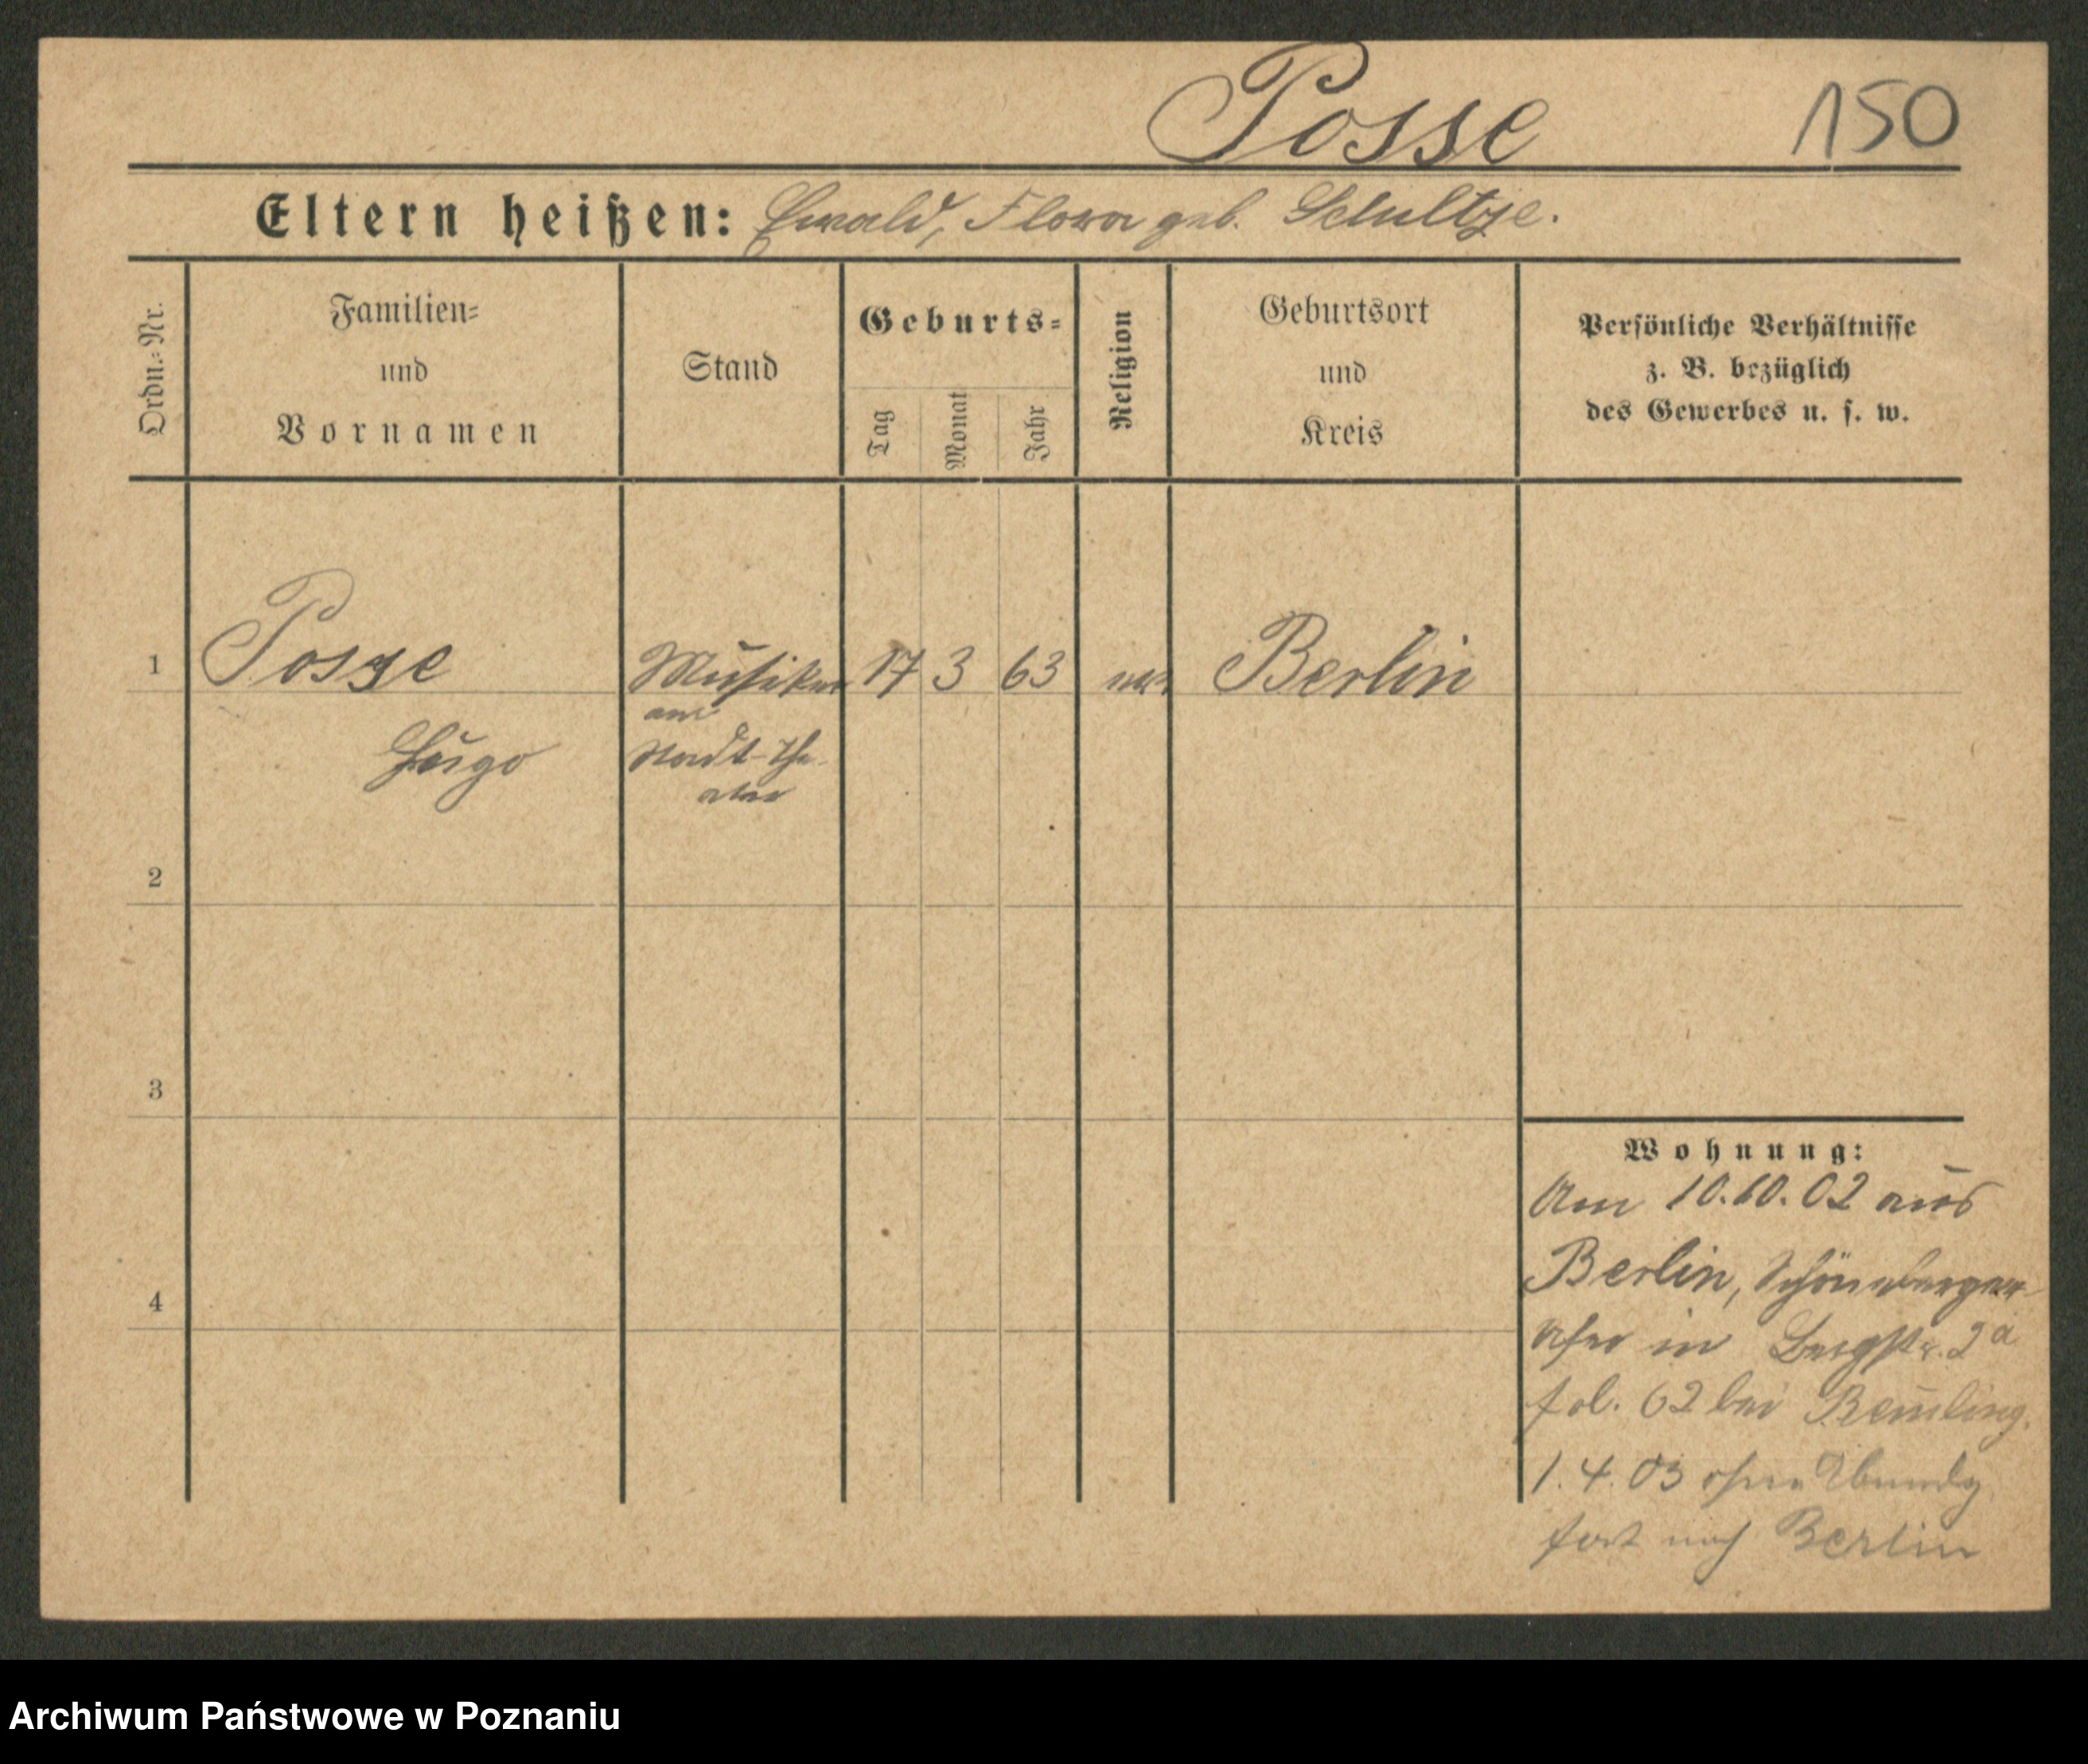 Posse 150
Eltern heißen: Ewald, Flora geb. Schultze.
Ordn.=Nr.
Familien=
und
Vornamen
Stand
Geburts=
Tag
Monat
Jahr
Religion
Geburtsort
und
Kreis
Persönliche Verhältnisse
z. B. bezüglich
des Gewerbes u. s. w.
1 Posse Musiker 17 3 63 Berlin
am
Hugo Stadt-The-
ater
2
3
4
Wohnung:
Am 10.10.02 aus
Berlin, Schöneberger
Ufer in Bergstr. 2a
fol. 62 bei
1.4.03 ohne
fort nach Berlin
Archiwum Państwowe w Poznaniu